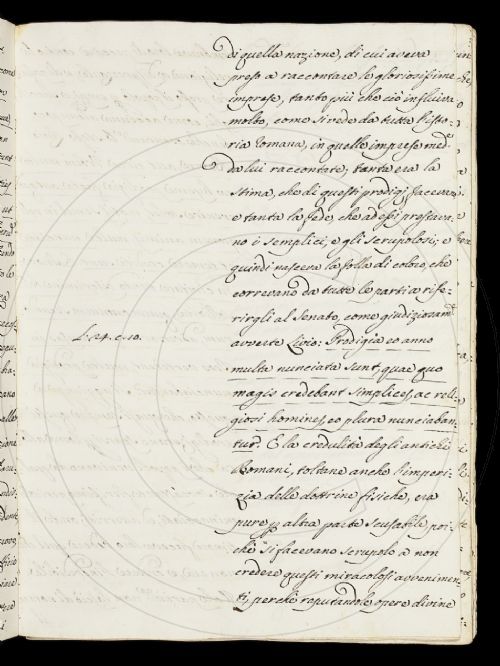 di quella nazione, di cui aveva
preso a raccontare le gloriosissime
imprese, tanto più che ciò influiva
molto, come si vede da tutta l'isto-
ria Romana, in quelle imprese med.e
da lui raccontate; tanta era la
stima, che di questi prodigj facevasi
e tanta la fede, che ad essi prestava-
no i semplici, e gli scrupolosi; e
quindi nasceva la folla di coloro, che
correvano da tutte le parti a rife-
rirgli al Senato, come giudiziosam.e
L. 24. c. 10.
avverte Livio: Prodigia eo anno
multa nunciata sunt, quae quo
magis credebant simplices, ac reli-
giosi homines, eo plura nunciaban-
tur. E la credulità degli antichi
Romani, toltane anche l'imperi-
zia delle dottrine fisiche, era
pure p altra parte scusabile poi-
chè si facevano scrupolo a non
credere questi miracolosi avvenimen-
ti, perchè reputandole opere divine